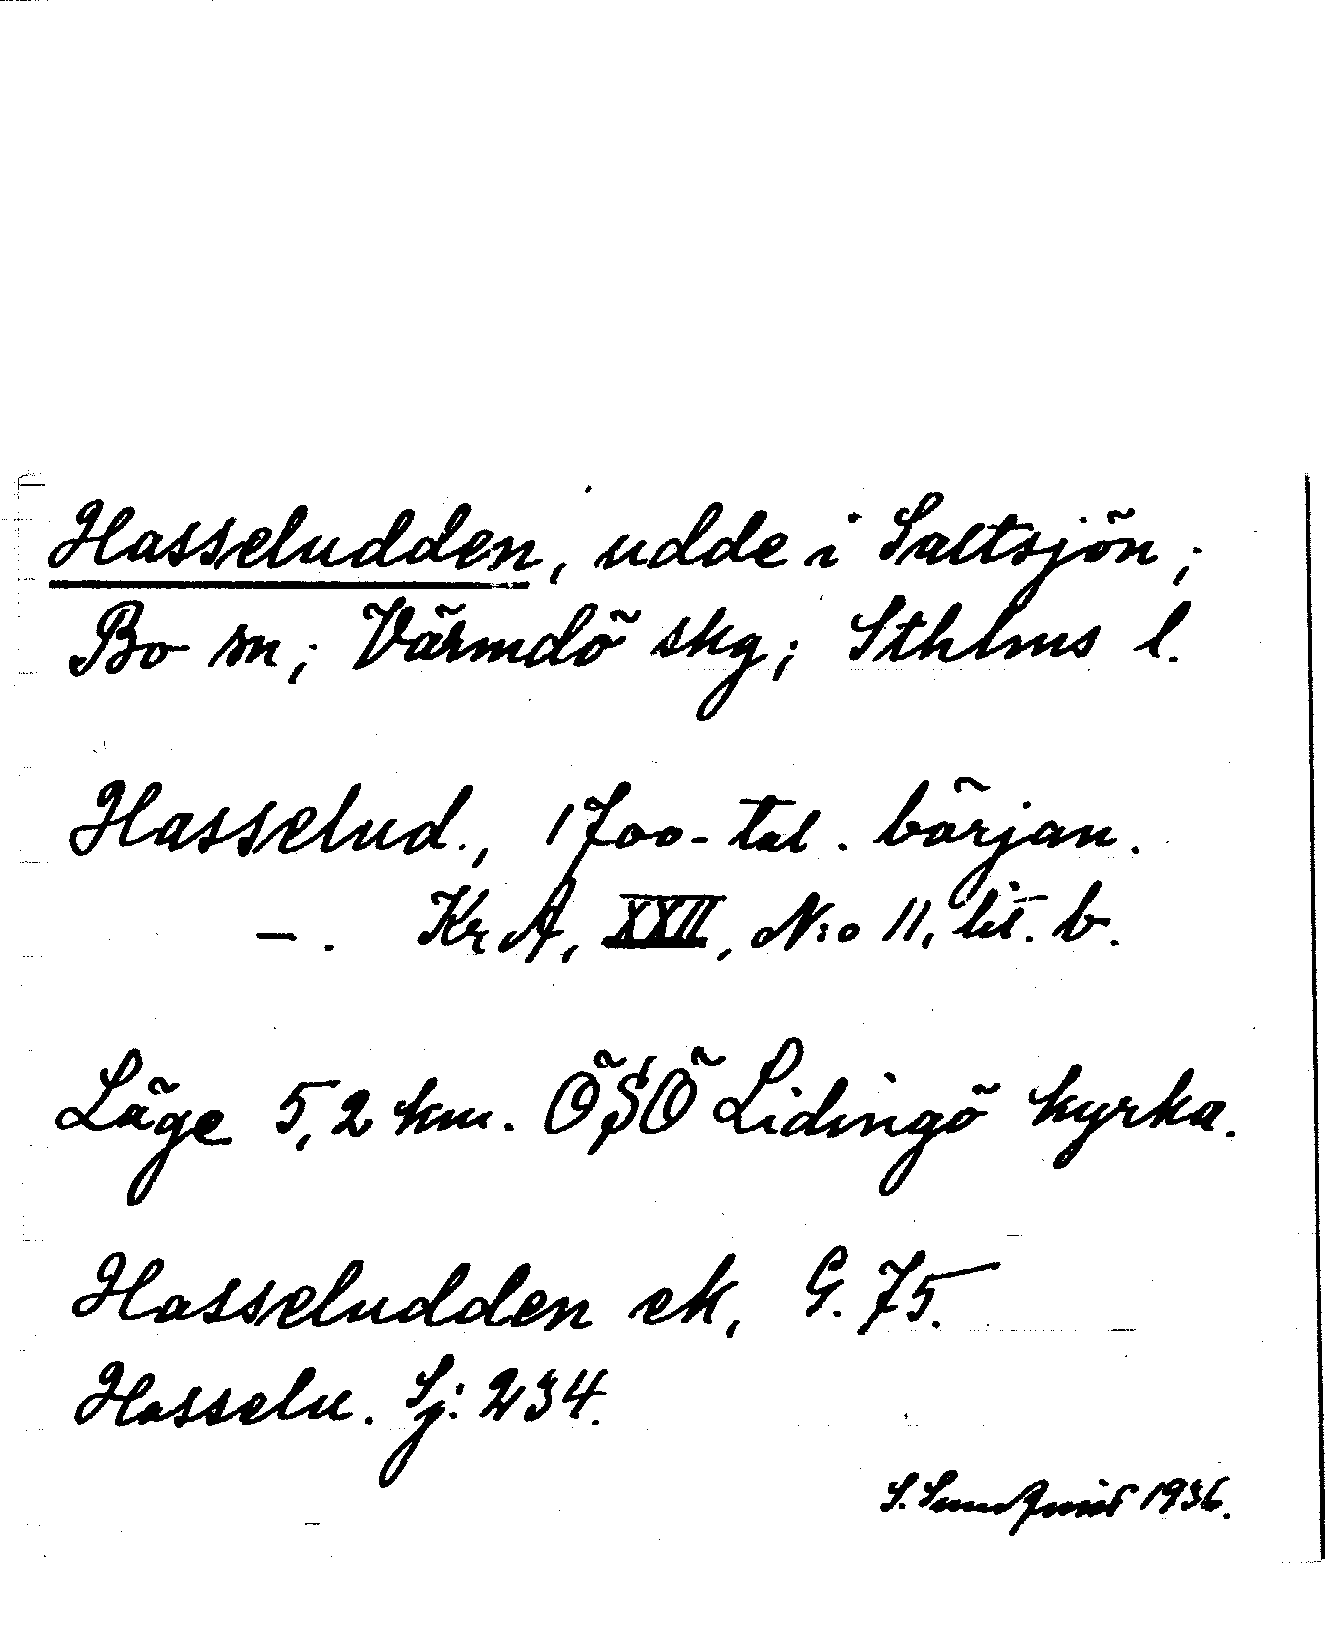 Hasseludden, udde i Saltsjön;
Bo sn; Värmdö skg; Sthlms l.
Hasselud., 1700-tal. början.
—. KrA, XXII, N:o 11, lit. b.
Läge 5,2 km. ÖSÖ Lidingö kyrka.
Hasseludden ek, G. 75.
Hasselu. Sj: 234.
S. Sundquist 1936.